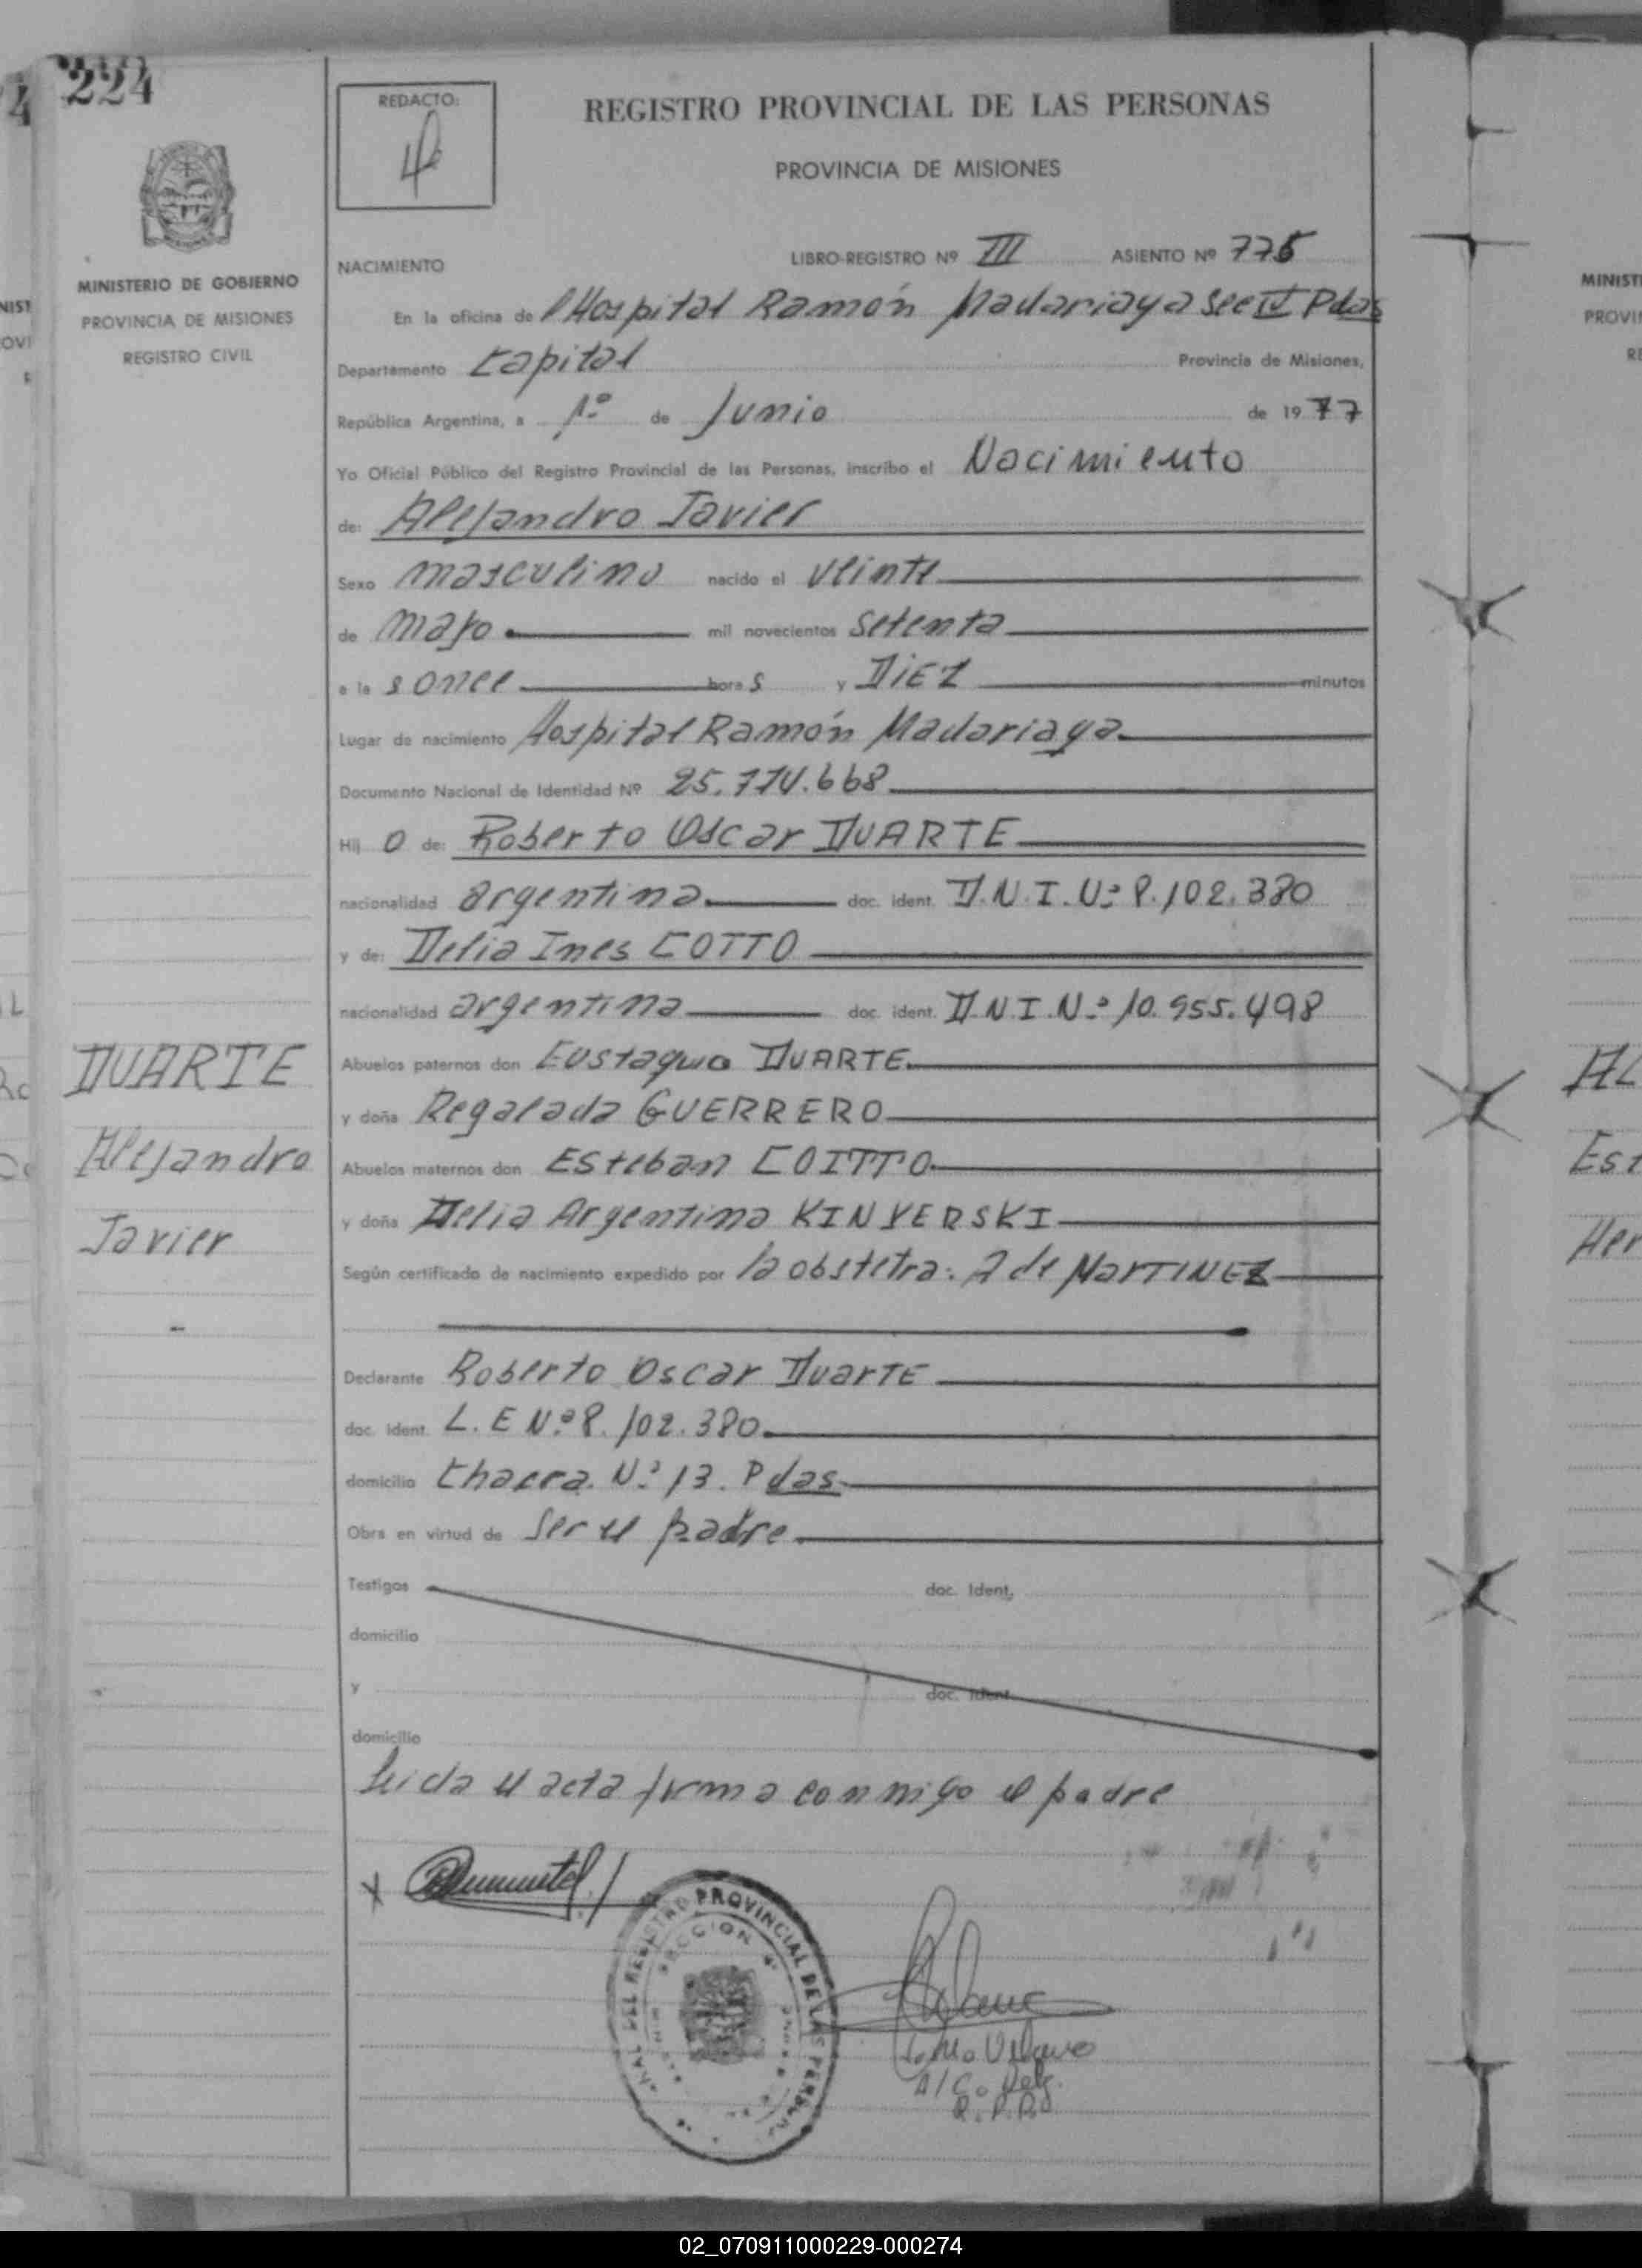 224
REDACTO:
REGISTRO PROVINCIAL DE LAS PERSONAS
PROVINCIA DE MISIONES
MINISTERIO DE GOBIERNO
PROVINCIA DE MISIONES
REGISTRO CIVIL
NACIMIENTO LIBRO-REGISTRO Nº III ASIENTO Nº 775
En la oficina de l Hospital Ramón Madariaga Sec IV Pdas
Departamento Capital Provincia de Misiones,
República Argentina, a 1º de Junio de 1977
Yo Oficial Público del Registro Provincial de las Personas, inscribo el Nacimiento
de: Alejandro Javier
Sexo masculino nacido el veinte
de mayo mil novecientos setenta
a la s once hora s y DiEZ minutos
Lugar de nacimiento Hospital Ramón Madariaga
Documento Nacional de Identidad Nº 25.774.668
Hij o de: Roberto Oscar DUARTE
nacionalidad argentina doc. ident. D.N.I. Nº 8.102.380
y de: Delia Ines COTTO
nacionalidad argentina doc. ident. D.N.I. Nº 10.955.498
DUARTE
Alejandro
Javier
Abuelos paternos don Eustaquio DUARTE
y doña Regalada GUERRERO
Abuelos maternos don Esteban COITTO
y doña Delia Argentina KINVERSKI
Según certificado de nacimiento expedido por la obstetra: A de MARTINEZ
Declarante Roberto Oscar DuarTE
doc. ident. L.E Nº 8.102.380
domicilio Chacra Nº 13. Pdas
Obra en virtud de ser el padre
Testigos doc. Ident.
domicilio
y doc. Ident.
domicilio
Leida el acta firma conmigo el padre
X
DEL REGISTRO PROVINCIAL DE LAS PERSONAS
SECCION
A/C. Delg.
R.P.P.
02_070911000229-000274